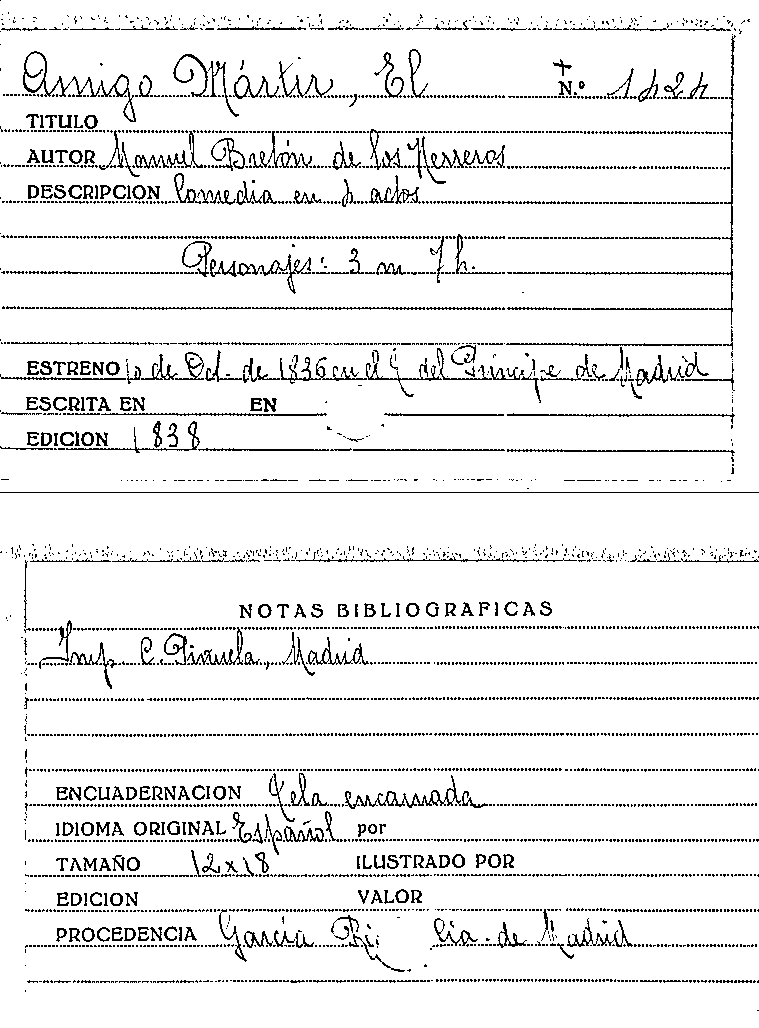 Amigo Mártir, El N.º 1424
TITULO
AUTOR Manuel Bretón de los Herreros
DESCRIPCION Comedia en 4 actos
Personajes: 3 m. 7 h.
ESTRENO 10 de Oct. de 1836 en el T. del Príncipe de Madrid
ESCRITA EN EN
EDICION 1838
NOTAS BIBLIOGRAFICAS
Imp C. Piñuela, Madrid
ENCUADERNACION Tela encarnada
IDIOMA ORIGINAL Español por
TAMAÑO 12x18 ILUSTRADO POR
EDICION VALOR
PROCEDENCIA García Cía. de Madrid